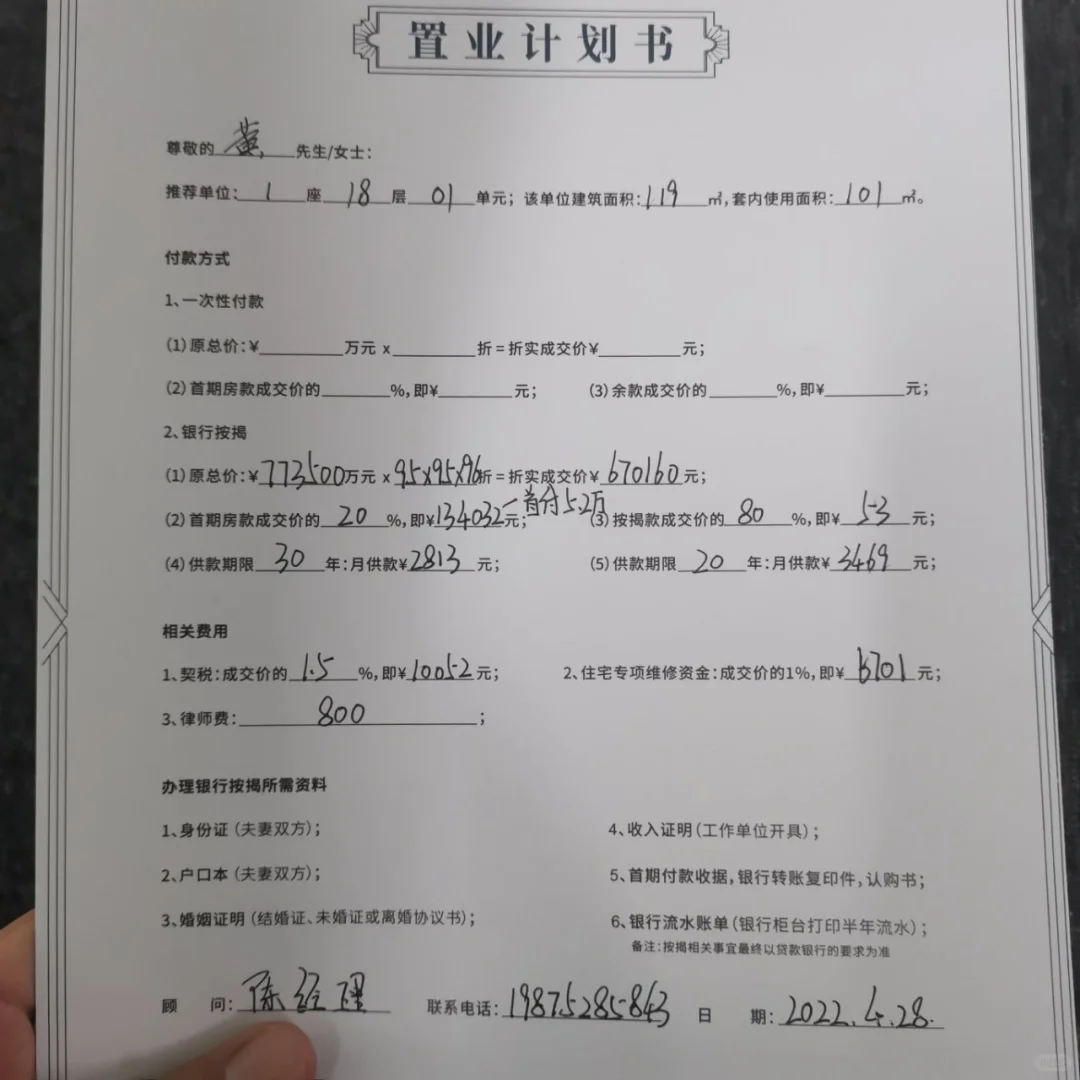 置业计划书
尊敬的 黄 先生/女士：
推荐单位： 1 座 18 层 01 单元；该单位建筑面积：119 ㎡，套内使用面积：101 ㎡。
付款方式
1、一次性付款
(1)原总价：¥______万元 x______折=折实成交价¥______元；
(2)首期房款成交价的______%，即¥______元； (3)余款成交价的______%，即¥______元；
2、银行按揭
(1)原总价：¥773500万元 x 95x95x96折=折实成交价¥ 670160元；
(2)首期房款成交价的 20 %，即¥134032元； 一首付5.2万 (3)按揭款成交价的 80 %，即¥ 53 元；
(4)供款期限 30 年：月供款¥2813 元； (5)供款期限 20 年：月供款¥3469 元；
相关费用
1、契税：成交价的 1.5 %，即¥10052元； 2、住宅专项维修资金：成交价的1%，即¥ 6701 元；
3、律师费： 800 ；
办理银行按揭所需资料
1、身份证（夫妻双方）； 4、收入证明（工作单位开具）；
2、户口本（夫妻双方）； 5、首期付款收据，银行转账复印件，认购书；
3、婚姻证明（结婚证、未婚证或离婚协议书）； 6、银行流水账单（银行柜台打印半年流水）；
备注：按揭相关事宜最终以贷款银行的要求为准
顾 问： 陈经理 联系电话：19875285843 日 期： 2022.4.28.